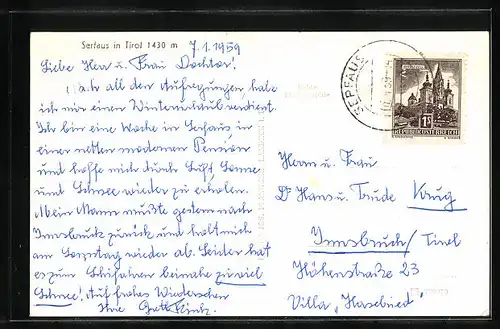 Serfaus in Tirol 1430 m
7.1.1959
Liebe Herr u. Frau Doktor!
Nach all den Aufregungen habe
ich mir einen Winterurlaub verdient.
Ich bin eine Woche in Serfaus, in
einer netten modernen Pension
und hoffe mich durch Luft, Sonne
und Schnee wieder zu erholen.
Mein Mann mußte gestern nach
Innsbruck zurück und holt mich
am Sonntag wieder ab. Leider hat
es zum Skifahren beinahe zuviel
Schnee! Auf frohes Wiedersehen
Ihre
SERFAUS
1S
REPUBLIK ÖSTERREICH
Herrn u. Frau
Dr Hans u. Trude Krug
Innsbruck / Tirol
Höhenstraße 23
Villa „Haselried"